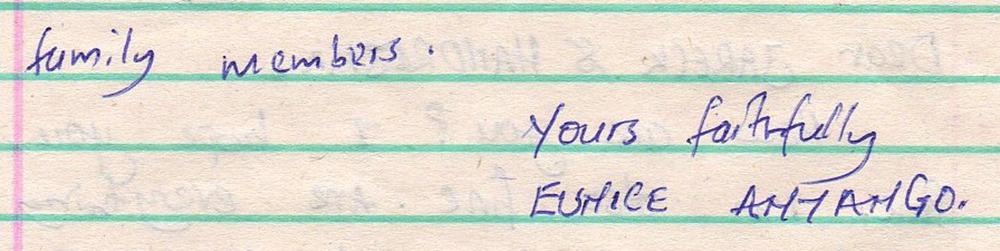 family members.
Yours faithfully
EUNICE ANYANGO.